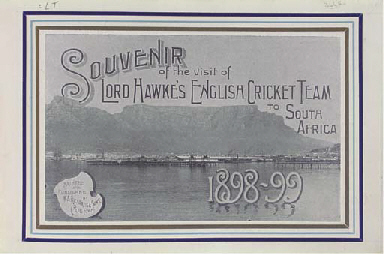 SOUVENIR
of the visit of
LORD HAWKE'S ENGLISH CRICKET TEAM
TO SOUTH
AFRICA
1898-99